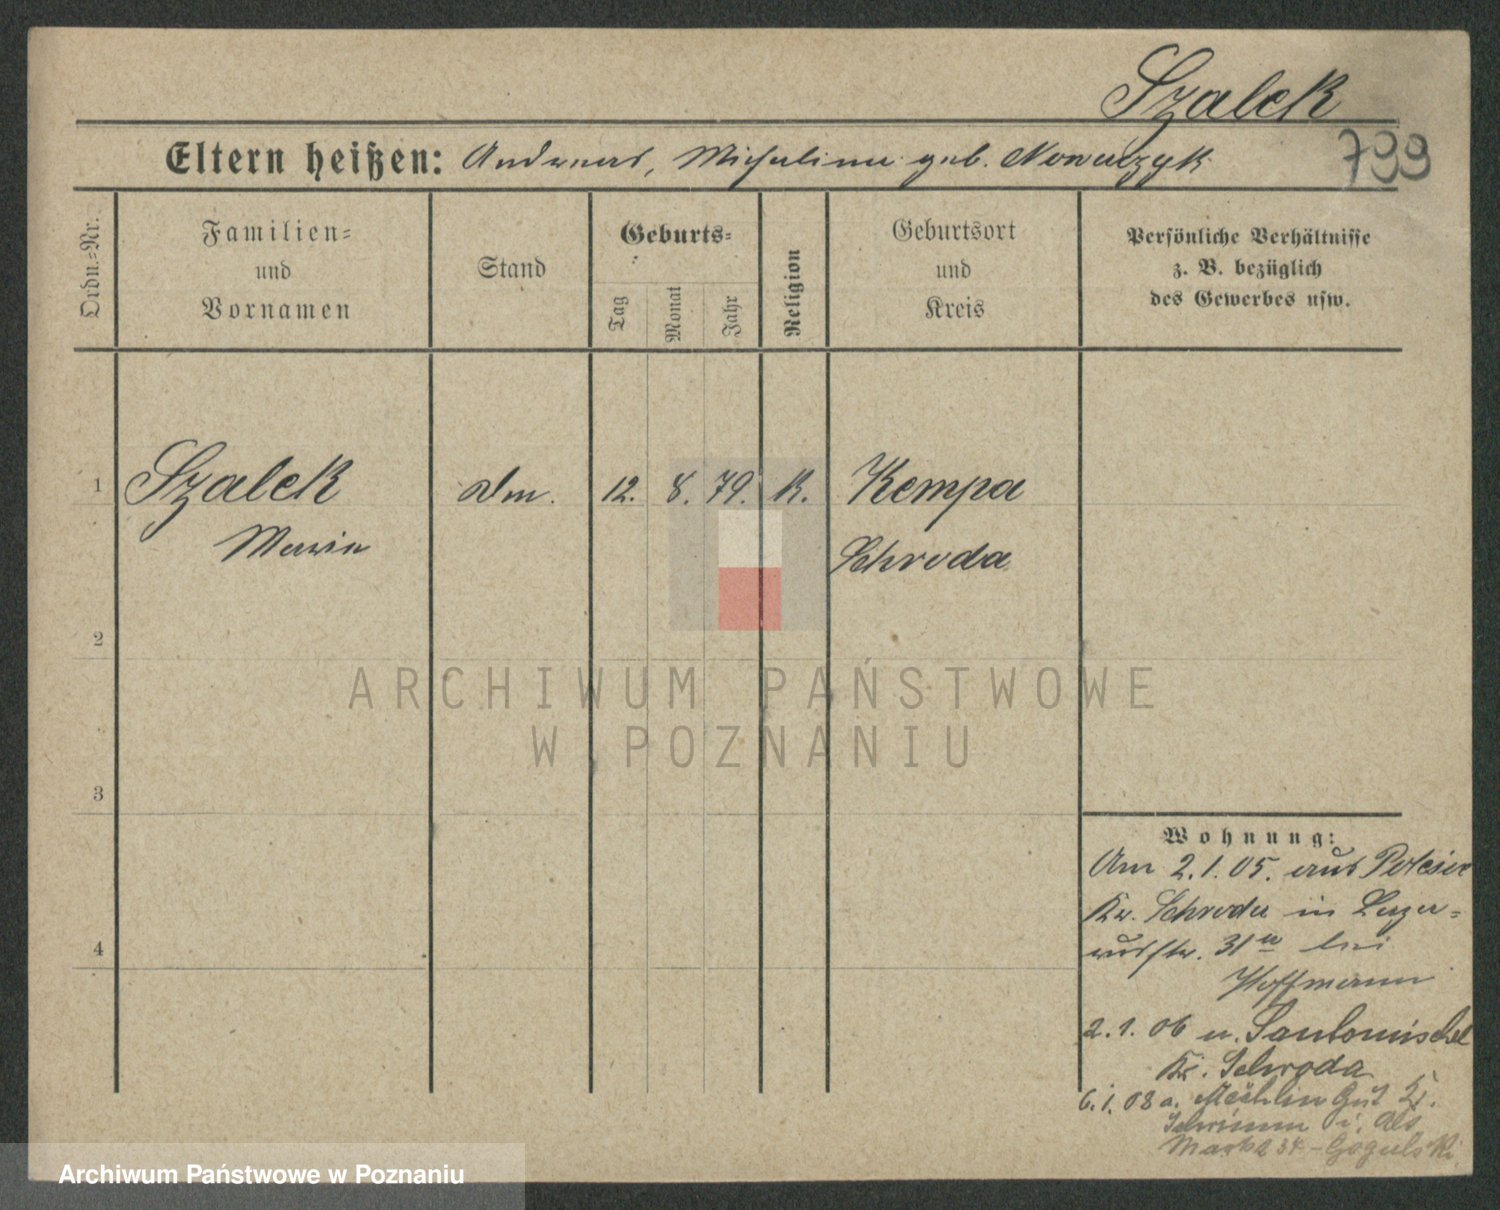 Szalek
Eltern heißen: Andreas, Michalina geb. Nowaczyk
799
Ordn.-Nr.
Familien-
und
Vornamen
Stand
Geburts-
Tag
Monat
Jahr
Religion
Geburtsort
und
Kreis
Persönliche Verhältnisse
z. B. bezüglich
des Gewerbes usw.
1 Szalek
Maria
12. 8. 79. K.
Kempa
Schroda
2
3
4
Wohnung:
Am 2.1.05. aus
Kr. Schroda in
31 a bei
Hoffmann
2.1.06 n. Santomischel
Kr. Schroda
6.1.08 a. Mechlin Gut Kr.
Schrimm i. Alt
Markt 34 - Gogulski
ARCHIWUM PAŃSTWOWE
W POZNANIU
Archiwum Państwowe w Poznaniu